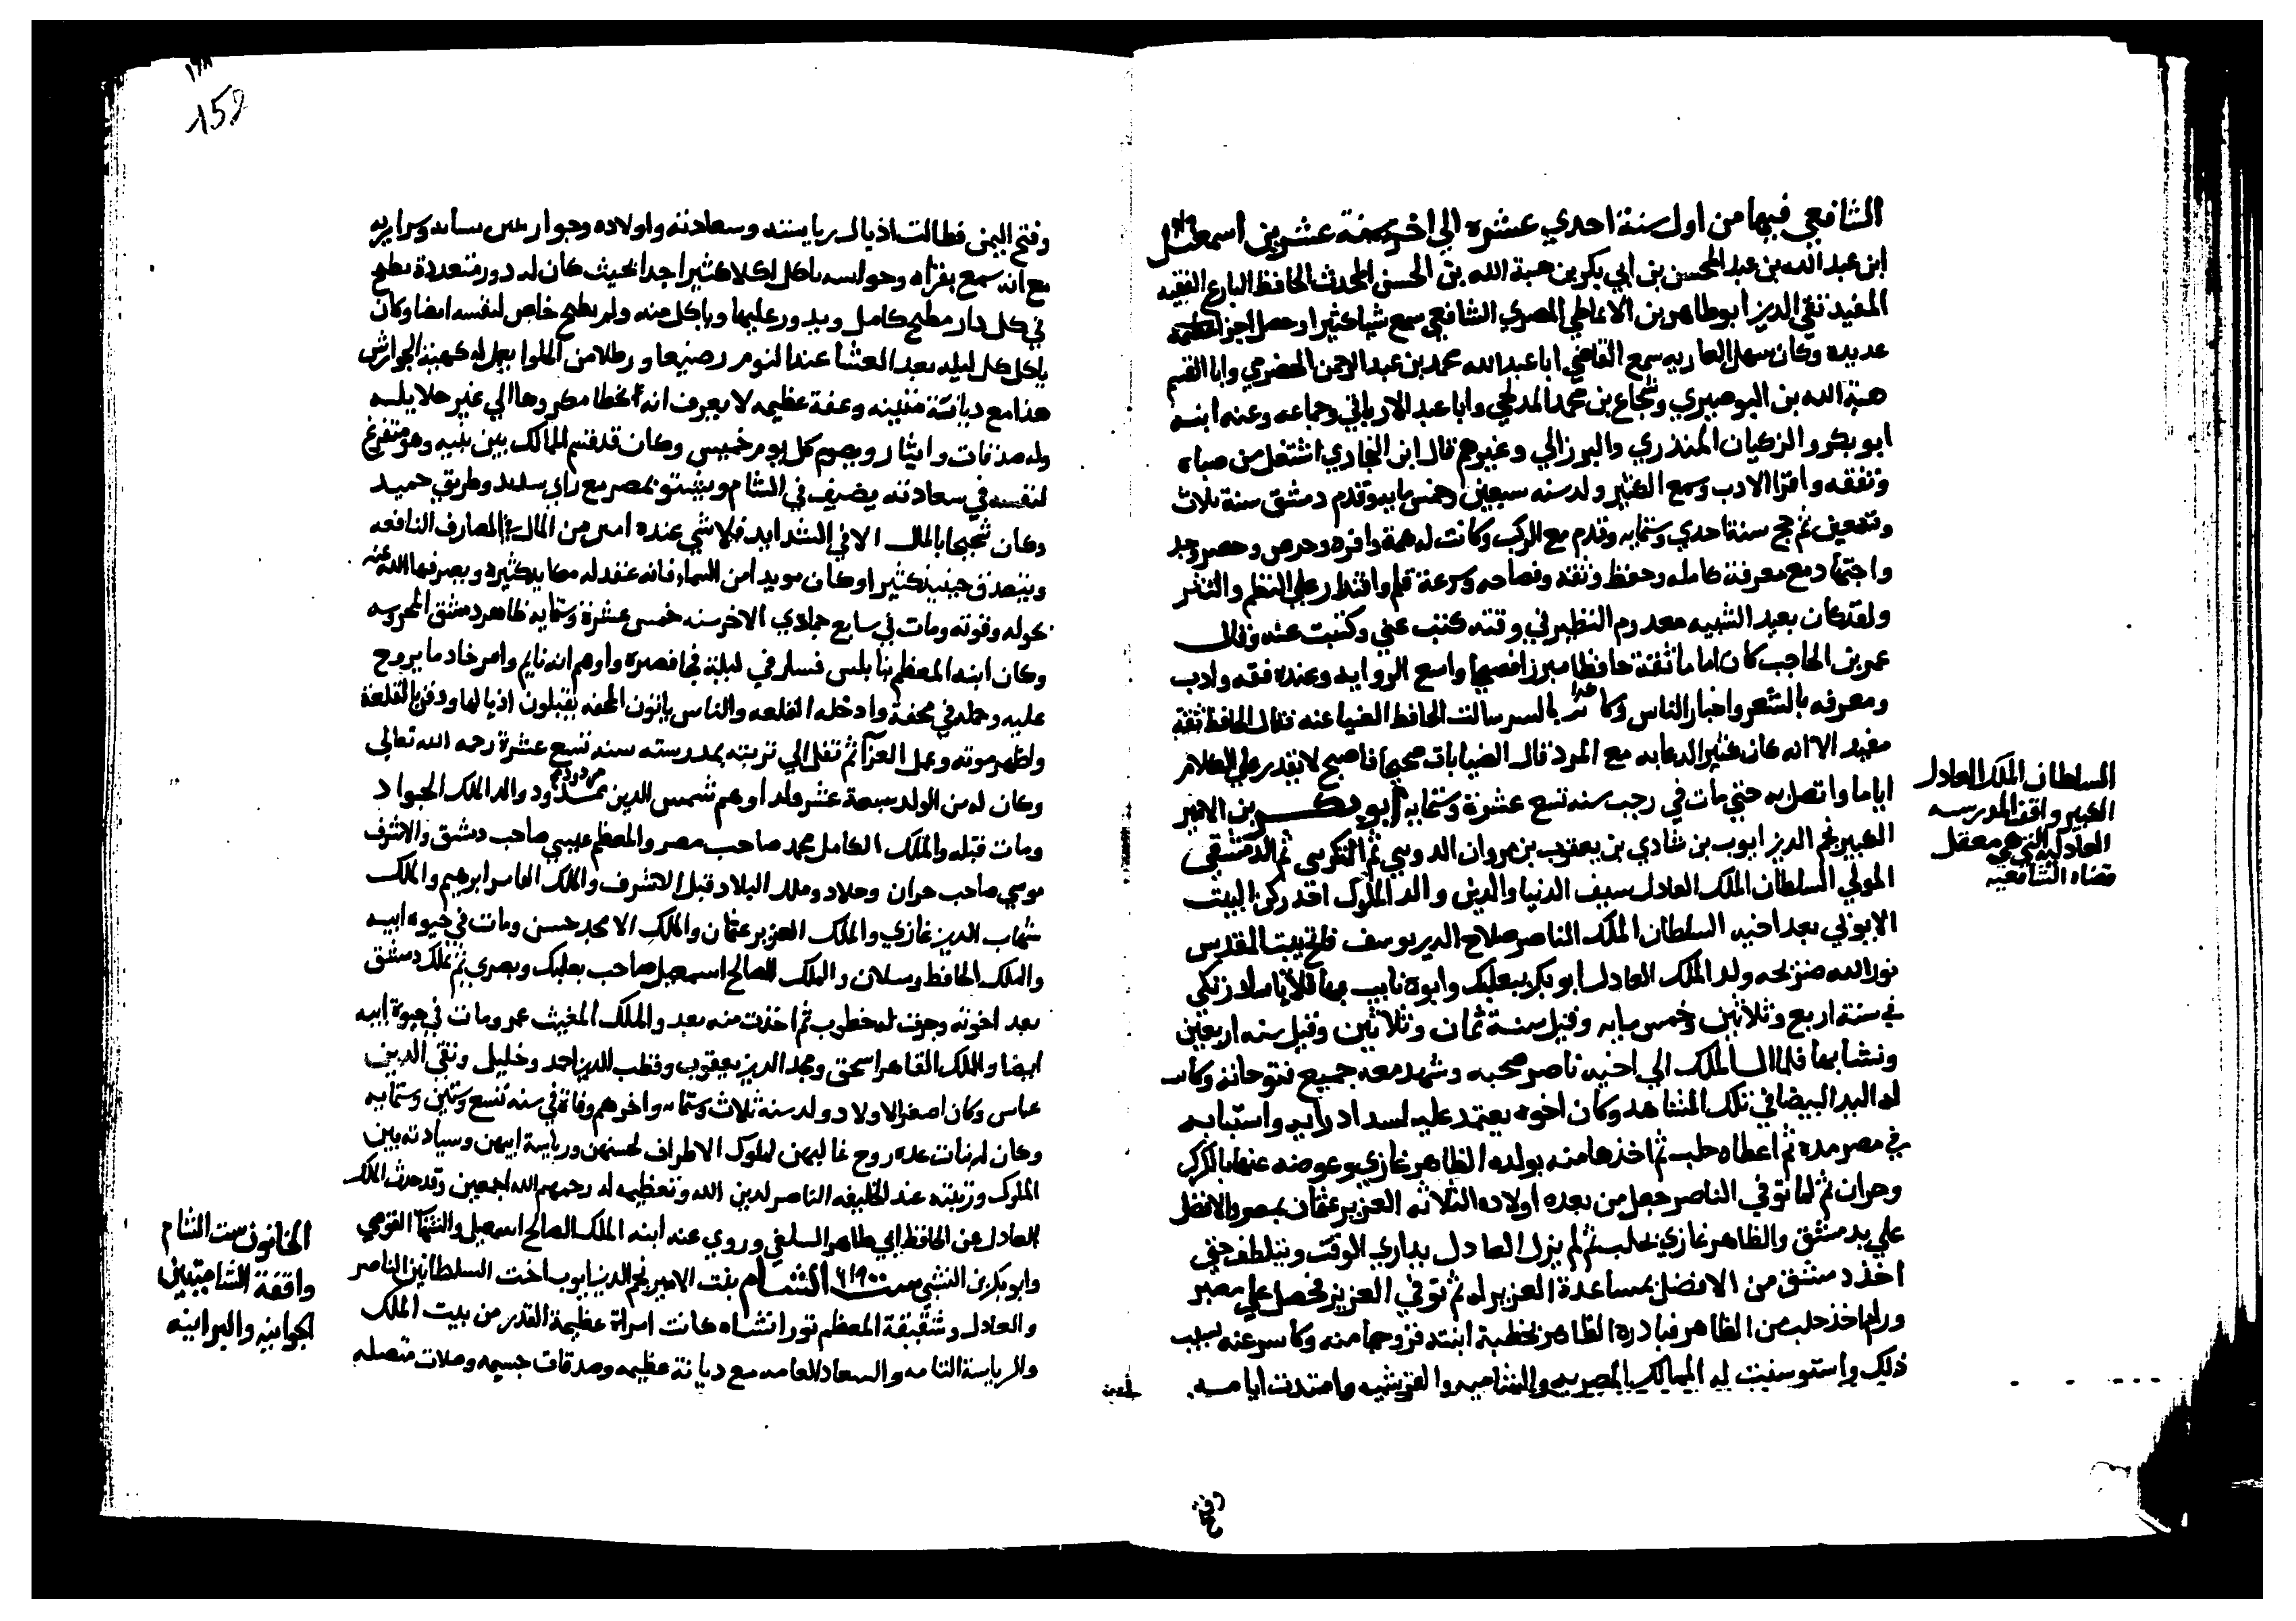 الشافعي فيها من اول سنة احدي عشرة الي اخر سنة عشرين اسمعيل
ابن عبد الله بن عبد المحسن بن ابي بكر بن هبة الله بن الحسن المحدث الحافظ البارع الفقيه
المفيد تقي الدين ابو طاهر بن الانماطي المصري الشافعي سمع شيا كثيرا وحصل اجزا عظيمة
عديده وكان سهل العاريه سمع القاضي ابا عبد الله محمد بن عبد الرحمن الحضرمي وابا القسم
هبة الله بن البوصيري وشجاع بن محمد المدلجي وابا عبد الارتاني وجماعه وعنه ابنه
ابو بكر والزكيان المنذري والبرزالي وغيرهم قال ابن النجار اشتغل من صباه
وتفقه واقرا الادب وسمع الكثير ولد سنه سبعين وخمس مايه وقدم دمشق سنة ثلاث
وتسعين ثم حج سنة احدي وستمايه وقدم مع الركب وكانت له همة وافره وحرص وجد
واجتهاد مع معرفة كامله وحفظ وثقه وفصاحه وسرعة قلم واقتدار علي النظم والنثر
ولقد كان بعيد الشبيه معدوم النظير في وقته كتب عني وكتبت عنه وقال
عمر بن الحاجب كان اماما ثقة حافظا مبرزا فصيحا واسع الروايه وعنده فقه وادب
ومعرفه بالشعر واخبار الناس سالت الحافظ الضيا عنه فقال الحافظ ثقة
مفيد الا انه كان كثير الدعابه مع المرد قال الضيا بات صحيحا فاصبح لا يقدر علي الكلام
اياما واتصل به حتي مات في رجب سنه تسع عشرة وستمايه ابو بكر بن الامير
الكبير نجم الدين ايوب بن شادي بن يعقوب بن مروان الدويني ثم التكريتي ثم الدمشقي
المولي السلطان الملك العادل سيف الدنيا والدين والد الملوك البيت
الايوبي بعد اخيه السلطان الملك الناصر صلاح الدين يوسف فاتح بيت المقدس
نور الله ضريحه ولد الملك العادل ابو بكر ببعلبك وابوه نايب بها للاتابك زنكي
في سنة اربع وثلاثين وخمس مايه وقيل سنة ثمان وثلاثين وقيل سنه اربعين
ونشا بها فلما ال الملك الي اخيه ناصر صحبه وشهد معه جميع فتوحاته وكانت
له اليد البيضا في تلك المشاهد وكان اخوه يعتمد عليه لسداد رايه واستنابه
في مصر مده ثم اعطاه حلب ثم اخذها منه بولده الظاهر غازي وعوضه عنها بالكرك
وحران ثم لما توفي الناصر جعل من بعده اولاده الثلاثه العزيز عثمان بمصر والافضل
علي بدمشق والظاهر غازي بحلب ثم لم يزل العادل يداري الوقت ويتلطف حتي
اخذ دمشق من الافضل بمساعدة العزيز له ثم توفي العزيز فحصل علي مصر
ورام اخذ حلب من الظاهر فبادره الظاهر بخطبة ابنته فزوجها منه عنه بسبب
ذلك واستوسقت له الممالك المصريه والشاميه وامتدت ايامه
السلطان الملك العادل
الكبير واقف المدرسه
العادليه التي هي معقل
قضاه الشافعيه
١٥٨
وفتح اليمن فطالت اذيال رياسته وسعادته واولاده وجواريه نسايه وسراريه
مع انه سمع بقراه وحواسه ياكل اكلا كثيرا جدا بحيث كان له دور متعددة يطبخ
في كل دار مطبخ كامل ويدور عليها وياكل منه وله مطبخ خاص لنفسه ايضا وكان
ياكل كل ليله بعد العشا عند النوم رضيعا ورطلا من الحلوا يعمل له كهية الجوارش
هذا مع ديانة متينه وعفة عظيمه لا يعرف انه تخطا مكروها الي غير حلايله
وله صدقات وايثار ويصوم كل يوم خميس وكان قد قسم الممالك بين بنيه وهو متفرغ
لنفسه في سعادته يصيف في الشام ويشتو بمصر مع راي سديد وطريق حميد
وكان شحيحا بالمال الا في الشدايد فلا شي عنده اهين من المال في المصارف النافعه
ويتصدق حينيذ كثيرا وكان مويدا من السما فانه عقد له مكايد كثيرة ويصرفها الله عنه
بحوله وقوته ومات في سابع جمادي الاخر سنه خمس عشرة وستمايه ظاهر دمشق المحروسه
وكان ابنه المعظم بنابلس فسار في ليلة فجا قصيره واوهم انه نايم وامر خادما يروح
عليه وحمله في محفة وادخله القلعه والناس ياتون المحفه يقبلون اذيالها ودفن بالقلعة
واظهر موته وعمل العزا ثم نقل الي تربته بمدرسته سنه تسع عشرة رحمه الله تعالي
وكان له من الولد سبعة عشر ولدا وهم شمس الدين ممدود والد الملك الجواد
ومات قبله والملك الكامل محمد صاحب مصر والمعظم عيسي صاحب دمشق والاشرف
موسي صاحب حران وخلاد وملك البلاد قبل الاشرف والملك ابرهيم والملك
شهاب الدين غازي والملك العزيز عثمان والملك الامجد حسن ومات في حيوه ابيه
والملك الحافظ رسلان والملك الصالح اسمعيل صاحب بعلبك وبصري ثم ملك دمشق
بعد اخوته وجرت له خطوب ثم اخذت منه بعد والملك المغيث عمر ومات في حيوة ابيه
ايضا والملك القاهر اسحق ومجد الدين يعقوب وقطب الدين احمد وخليل وتقي الدين
عباس وكان اصغر الاولاد ولد سنه ثلاث وستمايه واخرهم وفاة في سنه تسع وستين وستمايه
وكان له بنات عده زوج غالبهن لملوك الاطراف لحسنهن ورياسة ابيهن وسيادته بين
الملوك وزينته عند الخليفه الناصر لدين الله وتعظيمه له رحمهم الله اجمعين وقد حدث الملك
العادل عن الحافظ ابي طاهر السلفي وروي عنه ابنه الملك الصالح اسمعيل والشهاب القوصي
وابو بكر بن النشبي ست الشام بنت الامير نجم الدين ايوب اخت السلطانين الناصر
والعادل وشقيقة المعظم تورانشاه كانت امراة عظيمة القدر من بيت الملك
والرياسة التامه والسعاده العامه مع ديانة عظيمه وصدقات جسيمه وصلات متصله
الخاتون ست الشام
واقفة الشاميتين
الجوانيه والبرانيه